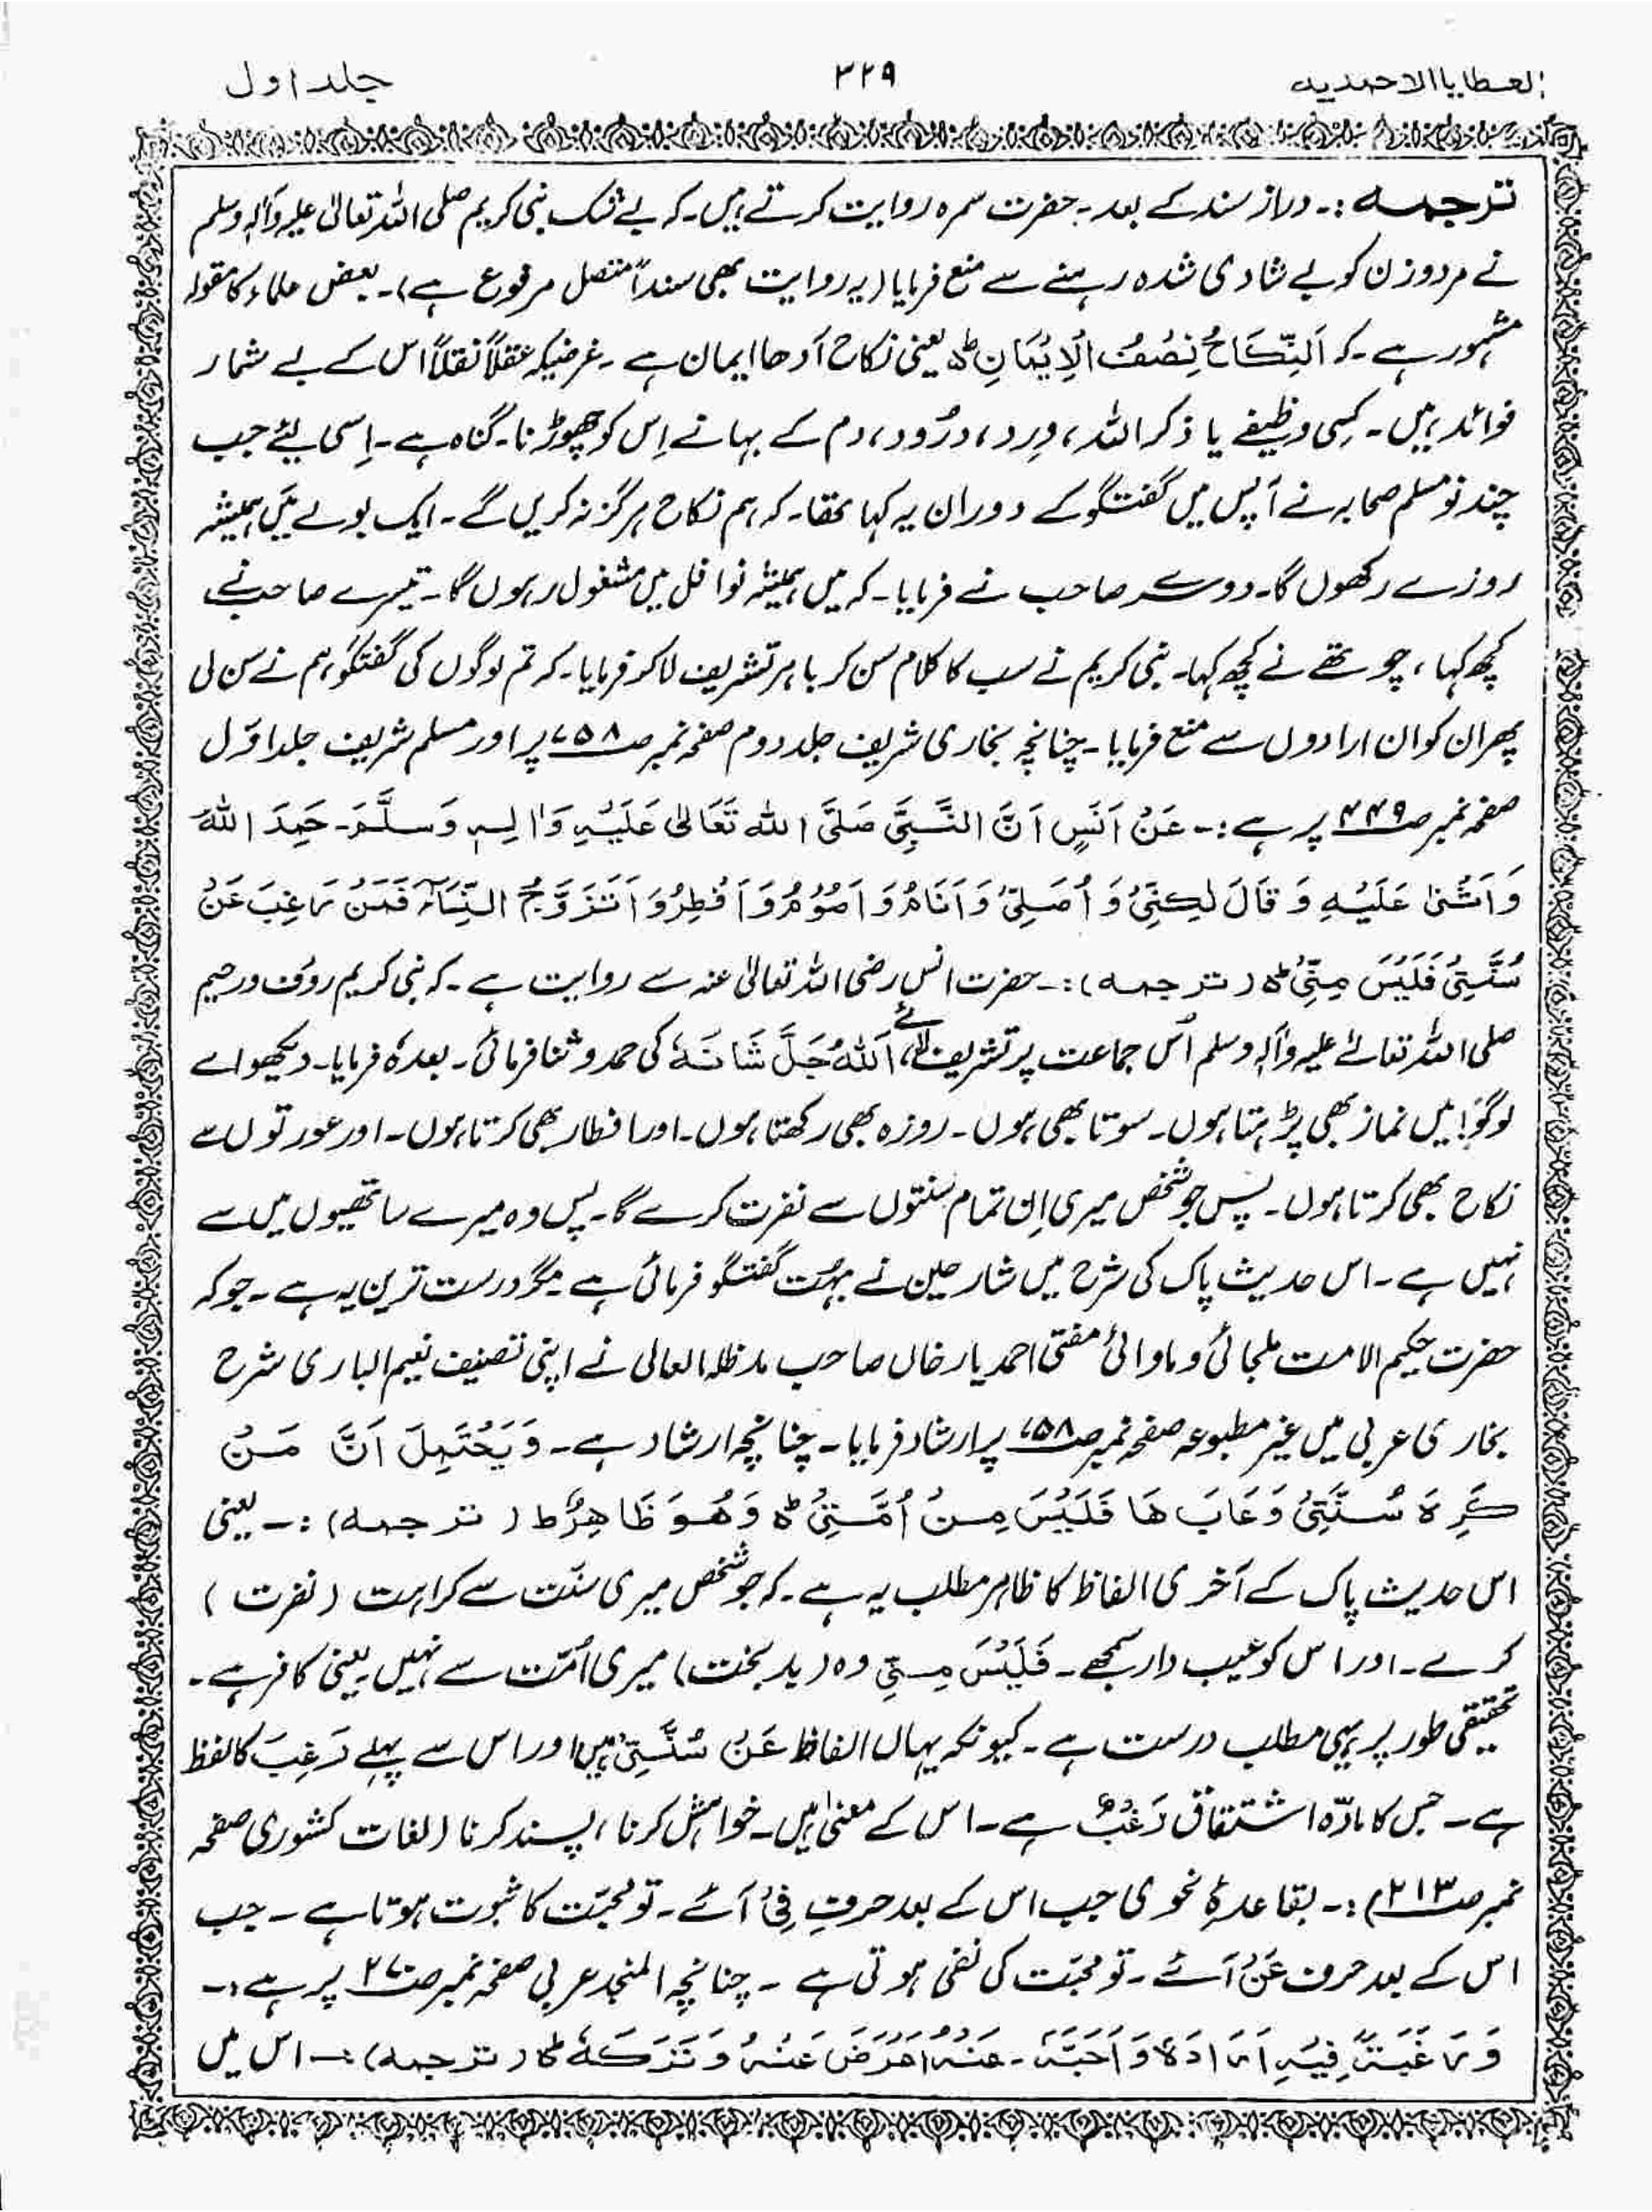 العطایا الاحمدیہ
۳۲۹
جلد اول
ترجمہ :۔ دراز سند کے بعد ۔ حضرت سمرہ روایت کرتے ہیں ۔ کہ بے شک نبی کریم صلی اللہ تعالیٰ علیہ وآلہ وسلم
نے مرد و زن کو بے شادی شدہ رہنے سے منع فرمایا (یہ روایت بھی سنداً متصل مرفوع ہے) ۔ بعض علماء کا مقولہ
مشہور ہے ۔ کہ اَلنِّکَاحُ نِصْفُ الْاِیْمَانِ ط یعنی نکاح آدھا ایمان ہے ۔ غرضیکہ عقلاً نقلاً اس کے بے شمار
فوائد ہیں ۔ کسی وظیفے یا ذکر اللہ ، وِرد ، درُود ، دم کے بہانے اِس کو چھوڑنا ۔ گناہ ہے ۔ اِسی لیئے جب
چند نو مسلم صحابہ نے آپس میں گفتگو کے دوران یہ کہا تھا ۔ کہ ہم نکاح ہرگز نہ کریں گے ۔ ایک بولے میَں ہمیشہ
روزے رکھوں گا ۔ دوسرے صاحب نے فرمایا ۔ کہ میں ہمیشہ نوافل میں مشغول رہوں گا ۔ تیسرے صاحب نے
کچھ کہا ، چوتھے نے کچھ کہا ۔ نبی کریم نے سب کا کلام سن کر باہر تشریف لا کر فرمایا ۔ کہ تم لوگوں کی گفتگو ہم نے سن لی
پھر ان کو ان ارادوں سے منع فرمایا ۔ چنانچہ بخاری شریف جلد دوم صفحہ نمبر صـ۷۵۸ پر اور مسلم شریف جلد اوّل
صفحہ نمبر صـ۴۴۹ پر ہے :۔ عَنْ اَنَسٍ اَنَّ النَّبِیَّ صَلَّی اللہ تَعَالیٰ عَلَیْہِ وَاٰلِہٖ وَسَلَّمَ ۔ حَمِدَ اللہَ
وَاَثْنیٰ عَلَیْہِ وَ قَالَ لٰکِنِّیْ وَ اُصَلِّیْ وَ اَنَامُ وَ اَصُوْمُ وَ اُفْطِرُ وَ اَتَزَوَّجُ النِّسَآءَ فَمَنْ رَغِبَ عَنْ
سُنَّتِیْ فَلَیْسَ مِنِّیْ ط (ترجمہ) :۔ حضرت انس رضی اللہ تعالیٰ عنہ سے روایت ہے ۔ کہ نبی کریم روف و رحیم
صلی اللہ تعالےٰ علیہ وآلہ وسلم اُس جماعت پر تشریف لائے ، اَللہُ جَلَّ شَانَہٗ کی حمد و ثنا فرمائی ۔ بعدہٗ فرمایا ۔ دیکھو اے
لوگو! میں نماز بھی پڑہتا ہوں ۔ سوتا بھی ہوں ۔ روزہ بھی رکھتا ہوں ۔ اور افطار بھی کرتا ہوں ۔ اور عورتوں سے
نکاح بھی کرتا ہوں ۔ پس جو شخص میری اِن تمام سنتوں سے نفرت کرے گا ۔ پس وہ میرے ساتھیوں میں سے
نہیں ہے ۔ اس حدیث پاک کی شرح میں شارحین نے بہُت گفتگو فرمائی ہے مگر درست ترین یہ ہے ۔ جو کہ
حضرت حکیم الامت ملجائی و ماوائی مفتی احمد یار خاں صاحب مدظلہ العالی نے اپنی تصنیف نعیم الباری شرح
بخاری عربی میں غیر مطبوعہ صفحہ نمبر صـ۷۵۸ پر ارشاد فرمایا ۔ چنانچہ ارشاد ہے ۔ وَیَحْتَمِلُ اَنَّ مَنْ
کَرِہَ سُنَّتِیْ وَعَابَ ھَا فَلَیْسَ مِنْ اُمَّتِیْ ط وَھُوَ ظَاھِرٌ ط (ترجمہ) :۔ یعنی
اس حدیث پاک کے آخری الفاظ کا ظاہر مطلب یہ ہے ۔ کہ جو شخص میری سنّت سے کراہت (نفرت)
کرے ۔ اور اس کو عیب دار سمجھے ۔ فَلَیْسَ مِنِّی وہ (بدبخت) میری اُمّت سے نہیں یعنی کافر ہے ۔
تحقیقی طور پر یہی مطلب درست ہے ۔ کیونکہ یہاں الفاظ عَنْ سُنَّتِیْ ہیں اور اس سے پہلے رَغِبَ کا لفظ
ہے ۔ جس کا مادّہ اشتقاق رَغْبٌ ہے ۔ اس کے معنیٰ ہیں ۔ خواہش کرنا ، پسند کرنا (لغات کشوری صفحہ
نمبر صـ۲۱۳) :۔ بقاعدہٗ نحوی جب اس کے بعد حرف فِیْ آئے ۔ تو محبّت کا ثبوت ہوتا ہے ۔ جب
اس کے بعد حرف عَنْ آئے ۔ تو محبّت کی نفی ہوتی ہے ۔ چنانچہ المنجد عربی صفحہ نمبر صـ۲۷۰ پر ہے :۔
وَرَغْبَۃً فِیْہِ اَرَادَہٗ وَاَحَبَّہٗ ۔ عَنْہُ اَعْرَضَ عَنْہُ وَتَرَکَہٗ ط (ترجمہ) :۔ اس میں